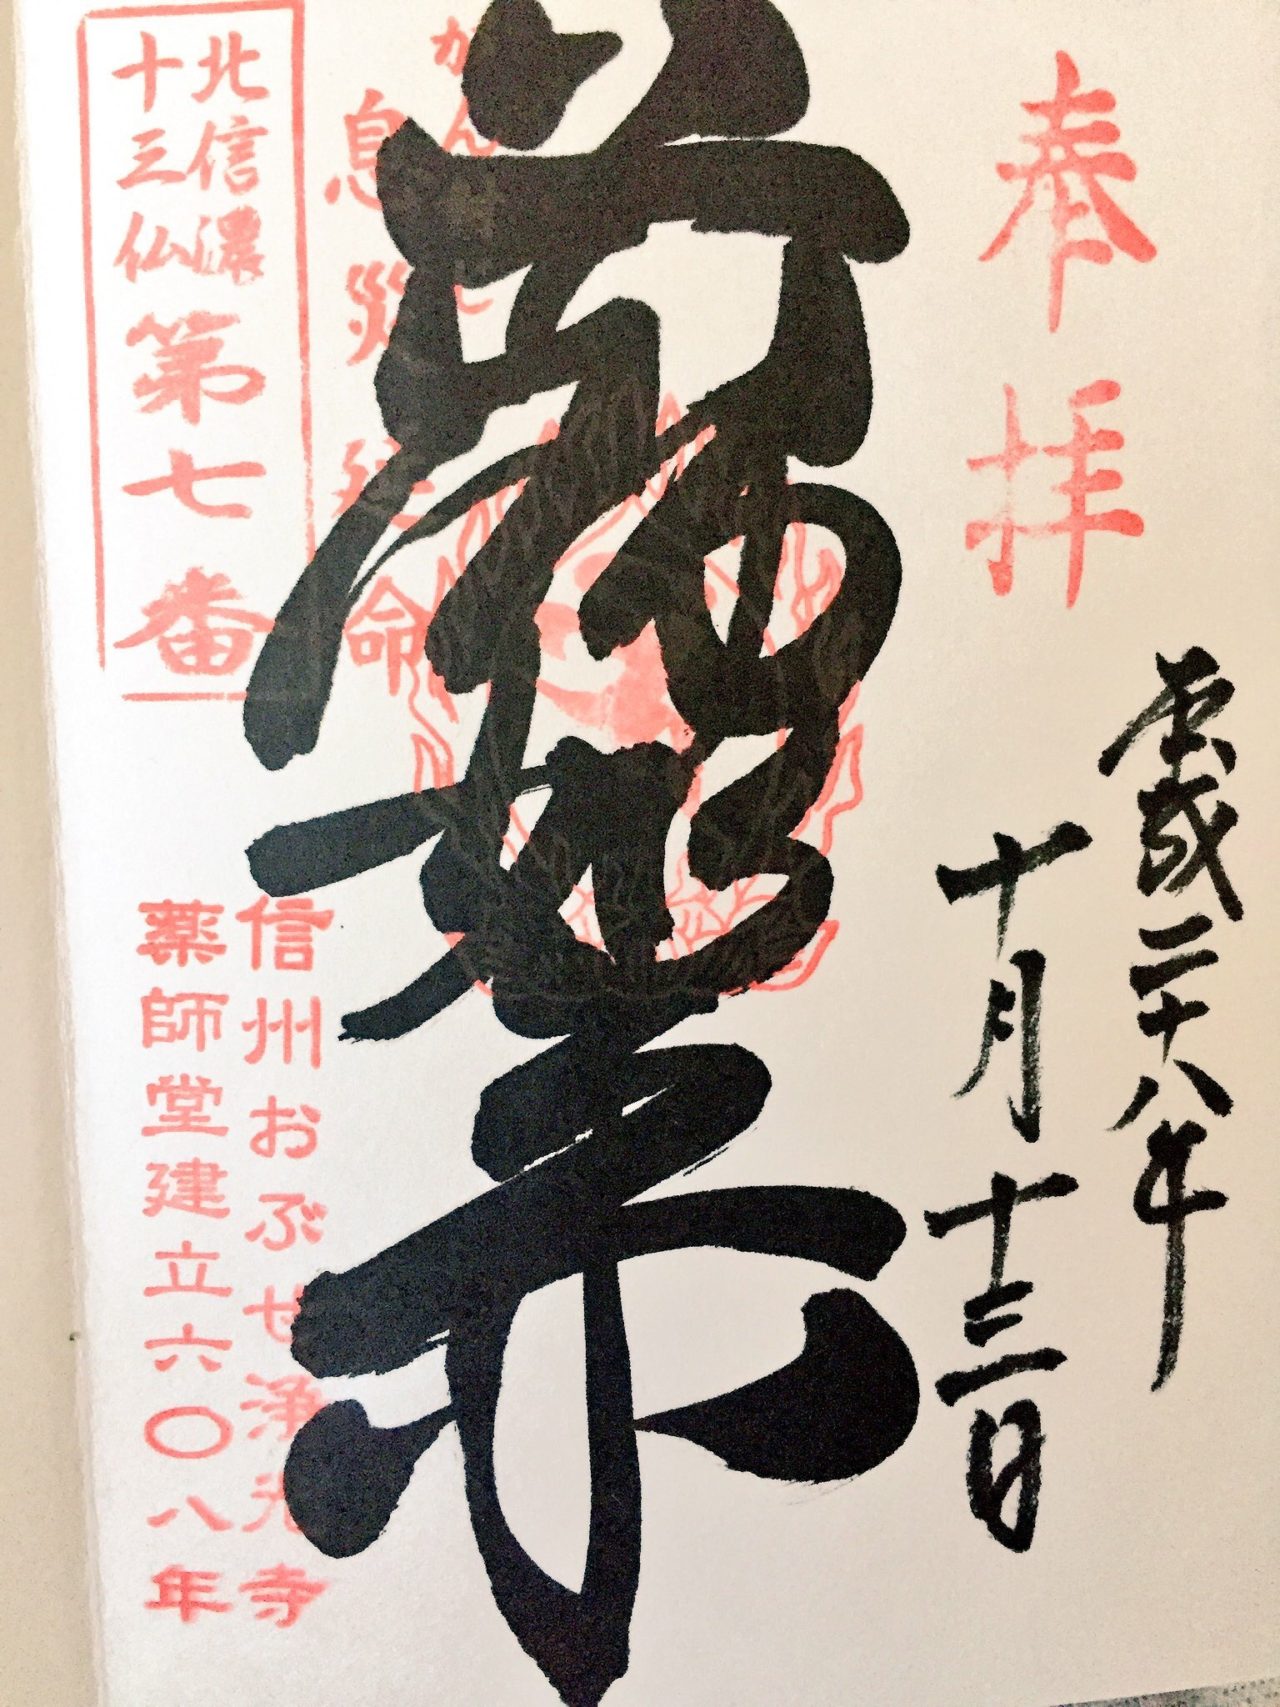 奉拝
平成二十八年
十月十三日
薬師如来
がん
息災延命
北信濃
十三仏
第七番
信州おぶせ浄光寺
薬師堂建立六〇八年